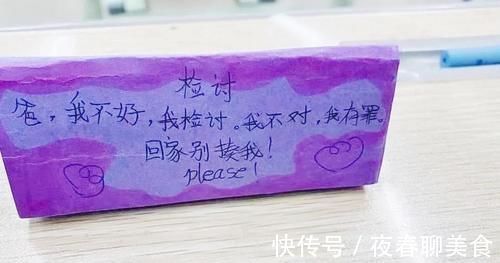 检讨
爸，我不好，我检讨。我不对，我有罪。
回家别揍我！
please！
快传号／夜春聊美食